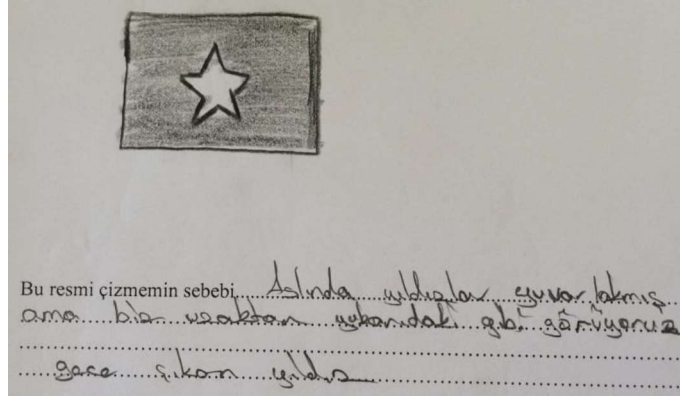 Bu resmi çizmemin sebebi Aslında yıldızlar yuvarlakmış
ama biz uzaktan yukarıdaki gibi görüyoruz
gece çıkan yıldız